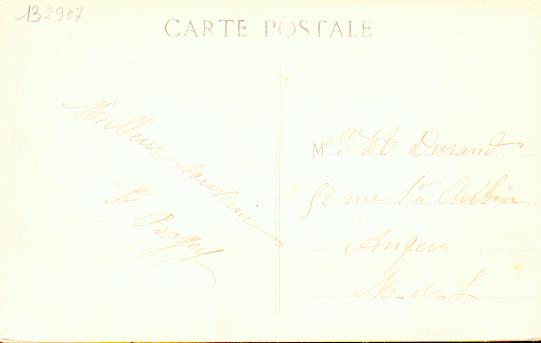 132907
CARTE POSTALE
Meilleur Souvenir
Mlle M Durand
52 rue St Aubin
Angers
M. et L.